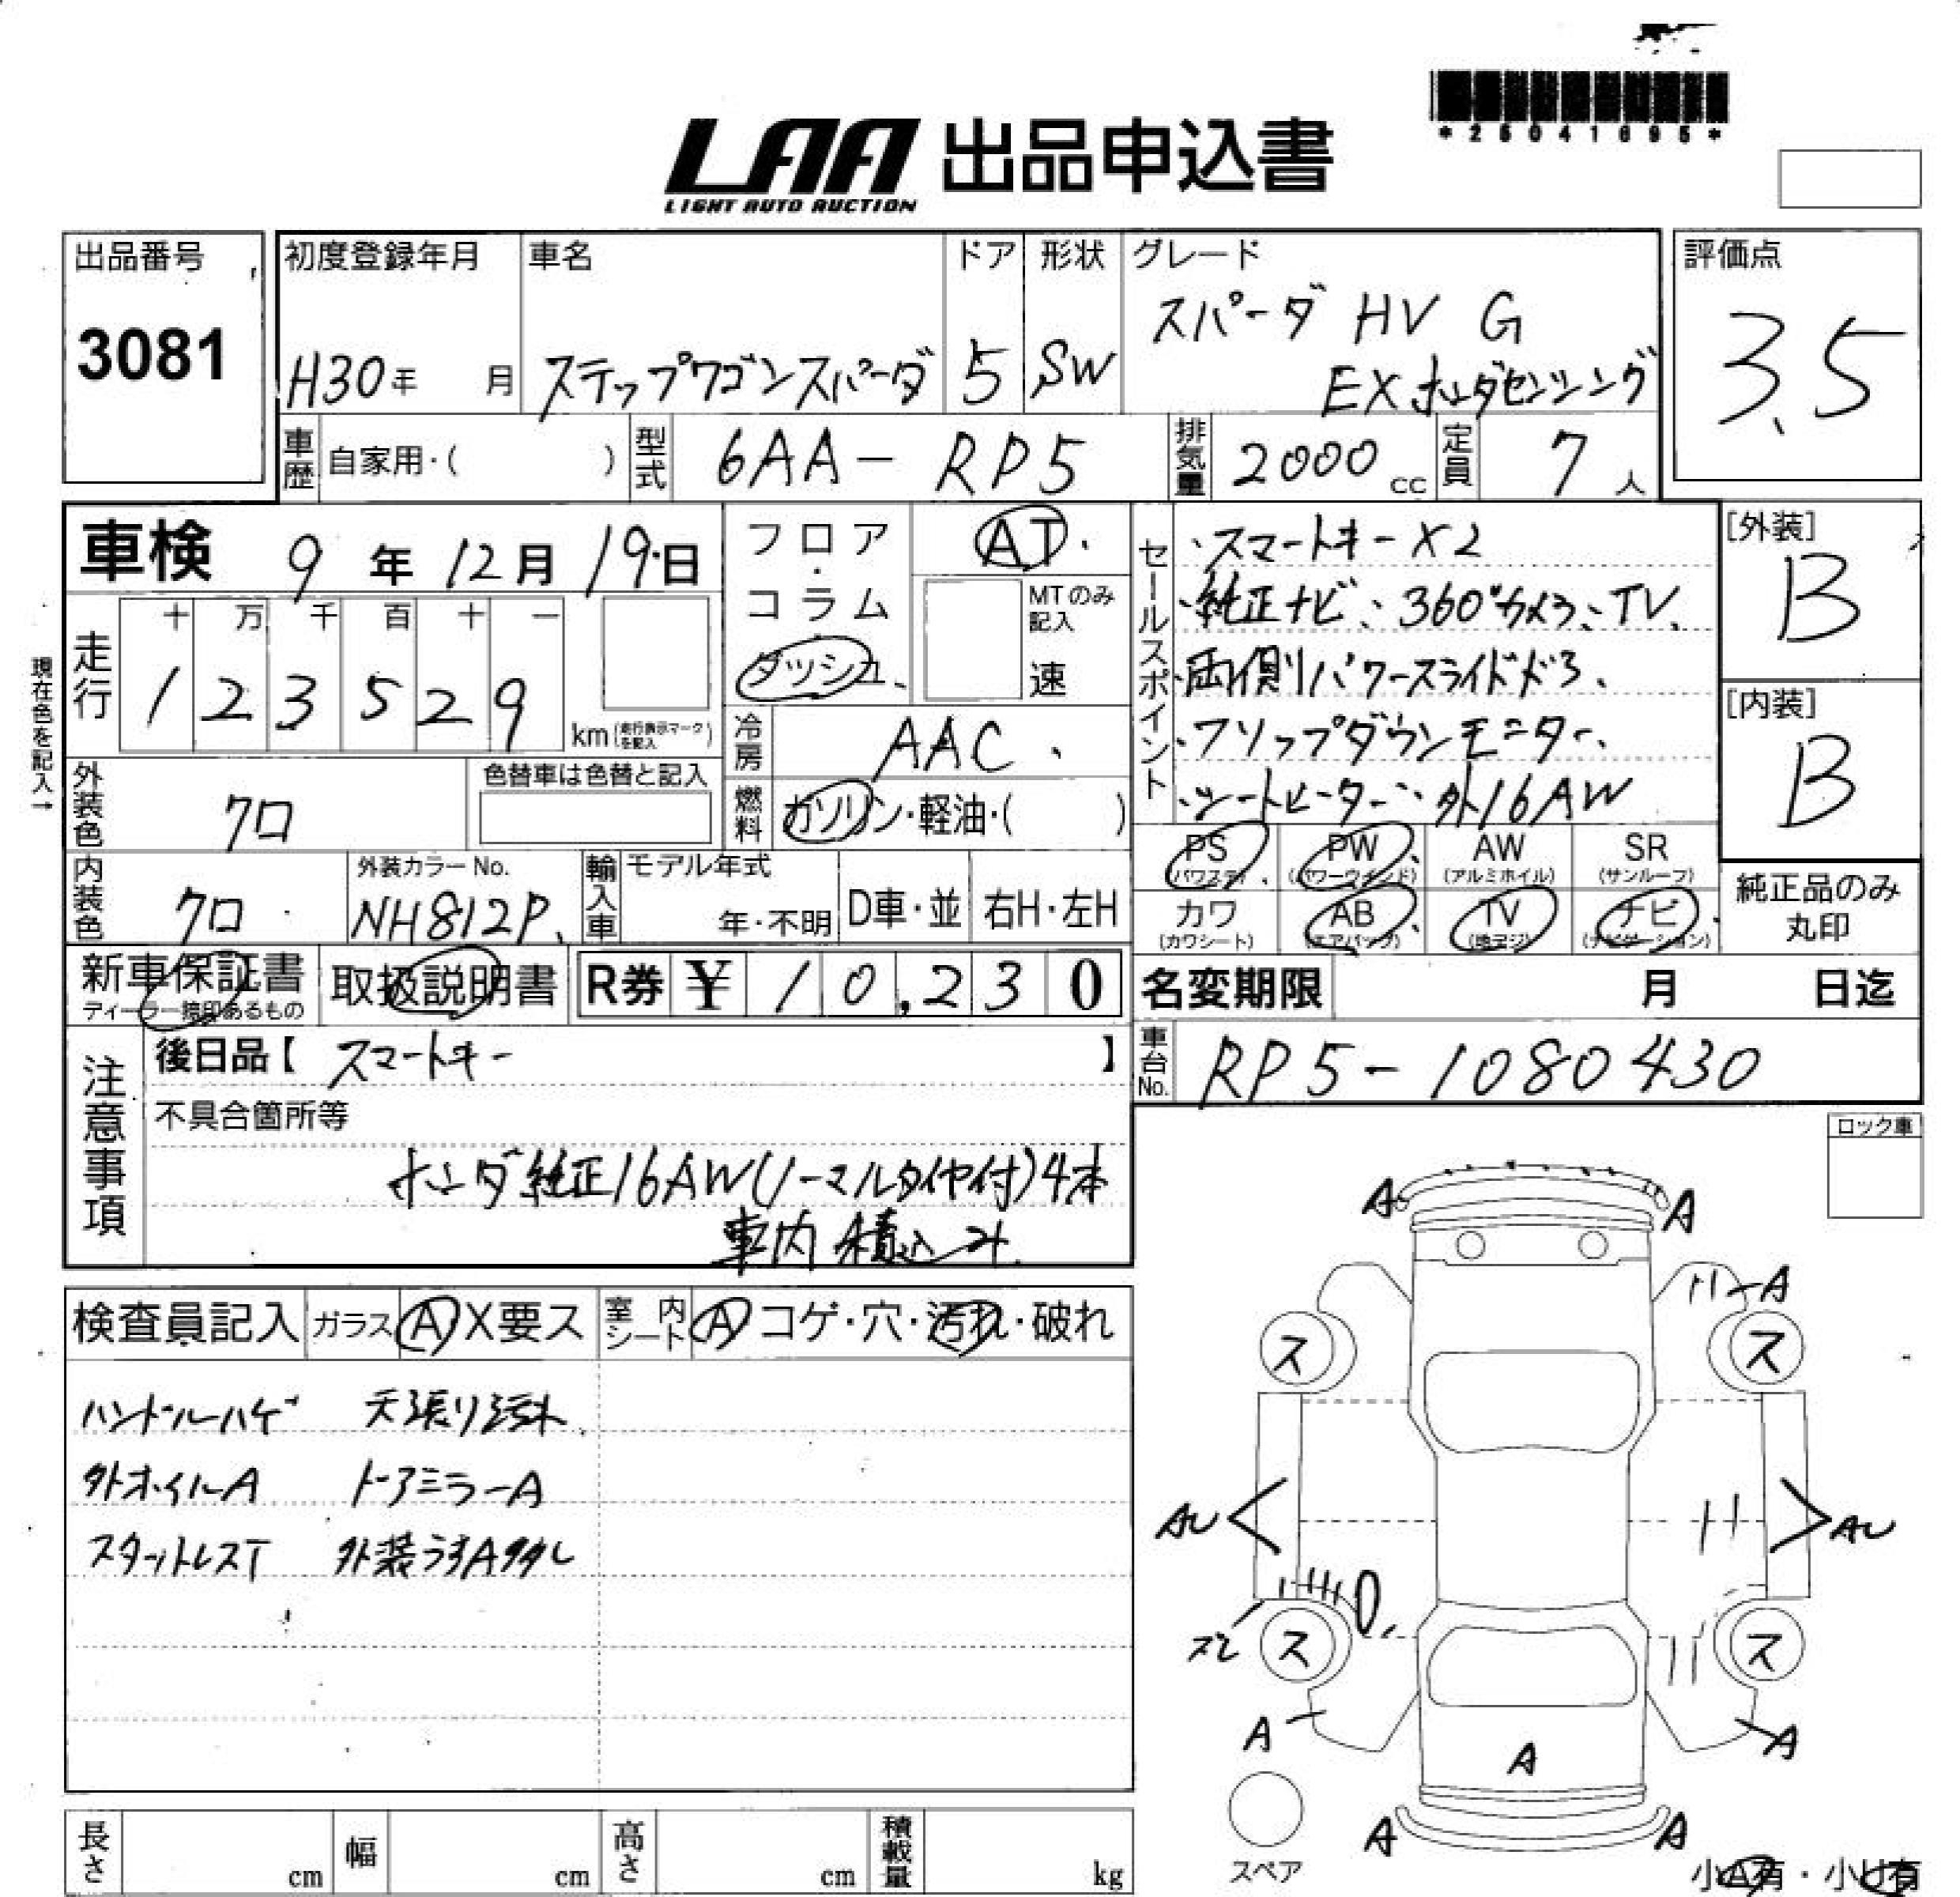 *25041695*
LAA 出品申込書
LIGHT AUTO AUCTION
出品番号
3081
初度登録年月
H30年 月
車名
ステップワゴンスパーダ
ドア
5
形状
SW
グレード
スパーダ HV G
EX ホンダセンシング
評価点
3.5
車歴 自家用・( )
型式 6AA-RP5
排気量 2000cc
定員 7人
車検 9年12月19日
走行
十 万 千 百 十 一
1 2 3 5 2 9
km(走行表示マークを記入)
現在色を記入→
フロア・コラム
ダッシュ
AT
MTのみ記入
速
冷房 AAC
燃料 ガソリン・軽油・( )
外装色 クロ
色替車は色替と記入
内装色 クロ
外装カラーNo.
NH812P
輸入車
モデル年式
年・不明
D車・並
右H・左H
セールスポイント
・スマートキー×2
・純正ナビ、360°カメラ、TV、
・両側パワースライドドア、
・フリップダウンモニター、
・シートヒーター、外16AW
[外装]
B
[内装]
B
PS (パワステ)
PW (パワーウインド)
AW (アルミホイル)
SR (サンルーフ)
カワ (カワシート)
AB (エアバッグ)
TV (地デジ)
ナビ (ナビゲーション)
純正品のみ
丸印
新車保証書
ディーラー捺印あるもの
取扱説明書
R券 ¥ 10,230
名変期限 月 日迄
車台No. RP5-1080430
注意事項
後日品【 スマートキー 】
不具合箇所等
ホンダ純正16AW(ノーマルタイヤ付)4本
車内積込み
ロック車
検査員記入
ガラス A X 要ス
室内シート A コゲ・穴・汚れ・破れ
ハンドルハゲ 天張り汚れ
外ホイルA ドアミラーA
スタットレスT 外装うすA多少し
A A
A
ス ス
AU AU
ス ス
A A
A
A A
スペア
小A有・小U有
長さ cm
幅 cm
高さ cm
積載量 kg